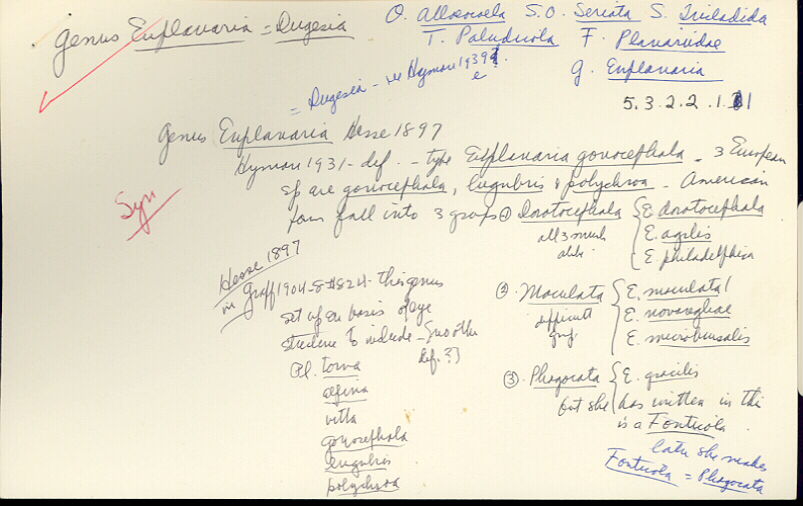 Genus Euplanaria = Dugesia
O. Alloeocoela S.O. Seriata S. Tricladida
T. Paludicola F. Planariidae
g. Euplanaria
= Dugesia - Hyman 1939
5.3.2.2.1.1
Genus Euplanaria Hesse 1897
Hyman 1931 - def. - type Euplanaria gonocephala - 3 European
sp are gonocephala, lugubris & polychroa - American
fall into 3 groups ① Dorotocephala { E. dorotocephala
all 3 much E. agilis
alike E. philadelphica
Syn
Hesse 1897
in Graff 1904-8 this genus
set up on basis of eye
structure to include - (another
def. ?)
Pl. torva
alpina
vitta
gonocephala
lugubris
polychroa
② Maculata { E. maculata
difficult E. novangliae
grp E. microbursalis
③ Phagocata { E. gracilis
but she has written in this
is a Fonticola
later she makes
Fonticola = Phagocata